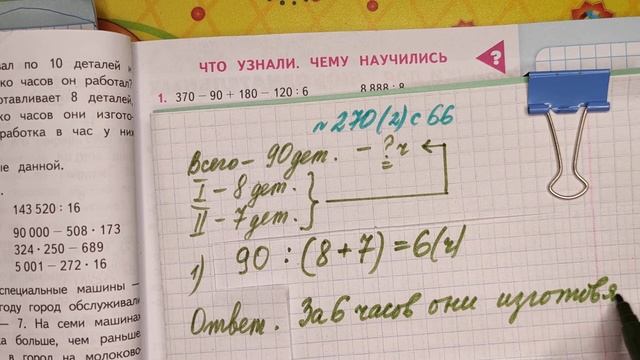 вал по 10 деталей и
ко часов он работал?
отавливает 8 деталей,
ко часов они изгото-
работка в час у них
ые данной.
143 520 : 16
90 000 − 508 · 173
324 · 250 − 689
5 001 − 272 · 16
специальные машины —
году город обслуживали
— 7. На семи машинах
ка больше, чем раньше
в город на молоково
ЧТО УЗНАЛИ. ЧЕМУ НАУЧИЛИСЬ
?
1. 370 − 90 + 180 − 120 : 6
8 888 : 8
№270(2) с 66
Всего – 90 дет. – ? ч
I – 8 дет.
II – 7 дет.
1) 90 : (8 + 7) = 6 (ч)
Ответ. За 6 часов они изготовя